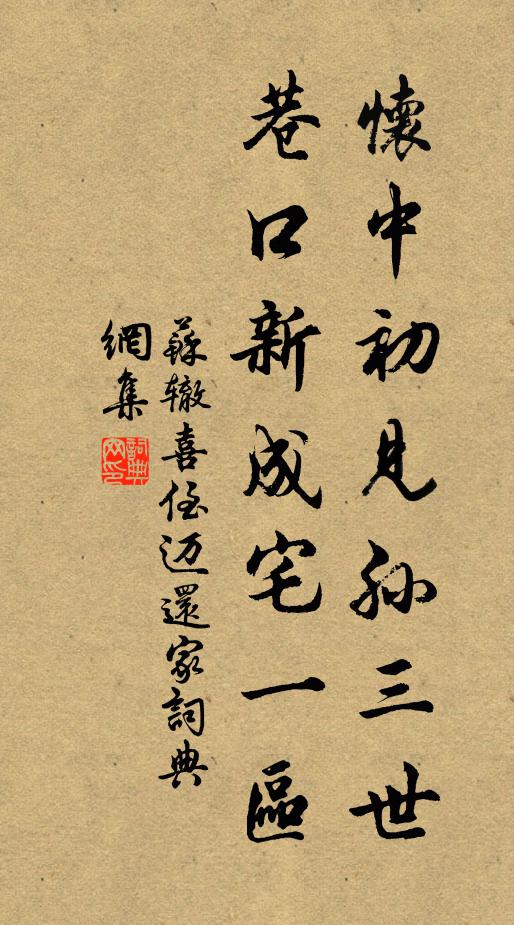 懷中初見孫三世
巷口新成宅一區
蘇辙喜侄迈還家詞典
網集
詞典网印